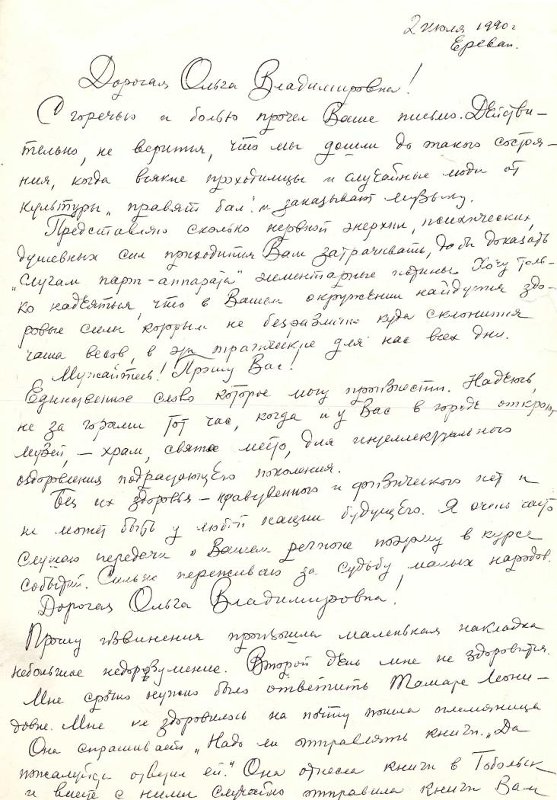 2 июля 1990 г
Ереван.
Дорогая Ольга Владимировна!
С горечью и болью прочел Ваше письмо. Действи-
тельно, не верится, что мы дошли до такого состоя-
ния, когда всякие проходимцы и случайные люди от
культуры „правят бал" и заказывают музыку.
Представляю сколько нервной энергии, психических,
душевных сил приходится Вам затрачивать, дабы доказать
"слугам парт-аппарата" элементарные истины. Хочу толь-
ко надеяться, что в Вашем окружении найдутся здо-
ровые силы которым не безразлично куда склонится
чаша весов, в эти трагические для нас всех дни.
Мужайтесь! Прошу Вас!
Единственное слово которое могу произнести. Надеюсь,
не за горами тот час, когда и у Вас в городе откроют
музей, – храм, святое место, для интеллектуального
оздоровления подрастающего поколения.
Без их здоровья – нравственного и физического нет и
не может быть у любой нации будущего. Я очень часто
слушаю передачи о Вашем регионе поэтому в курсе
событий. Сильно переживаю за судьбу малых народов.
Дорогая Ольга Владимировна!
Прошу извинения произошла маленькая накладка
небольшое недоразумение. Второй день мне не здоровится.
Мне срочно нужно было ответить Тамаре Леони-
довне. Мне не здоровилось на почту пошла племянница
Она спрашивает „Надо ли отправлять книги". „Да
пожалуйста отправь ей." Она отнесла книги в Тобольск
и вместе с ними случайно отправила книги Вам